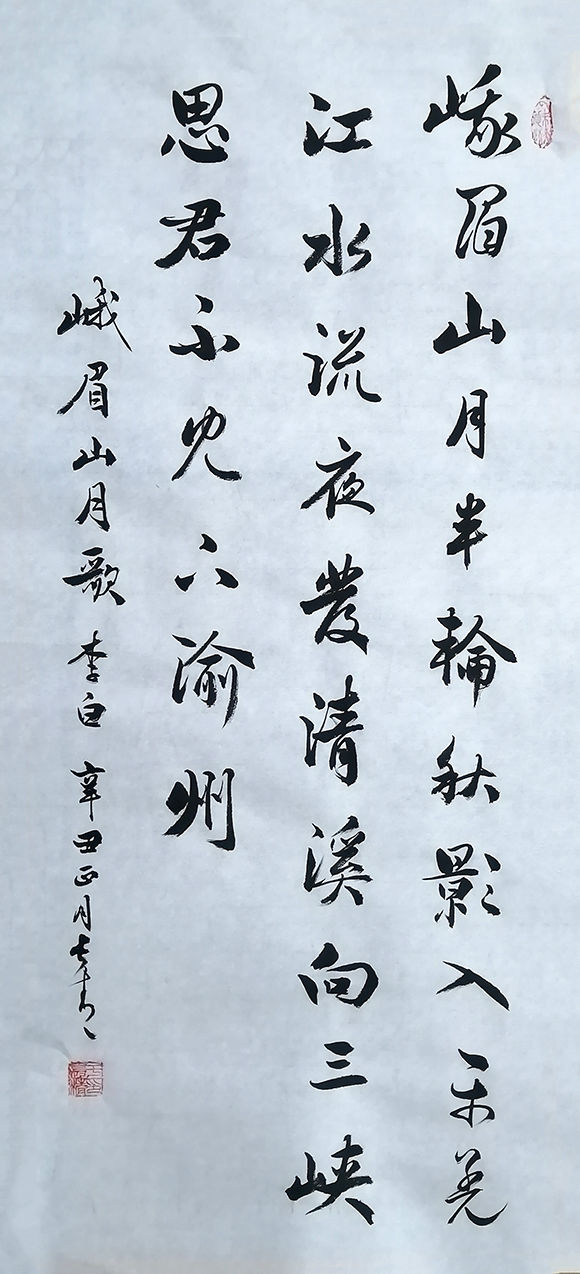 峨眉山月半輪秋影入平羌
江水流夜發清溪向三峽
思君不見下渝州
峨眉山月歌 李白 辛丑正月